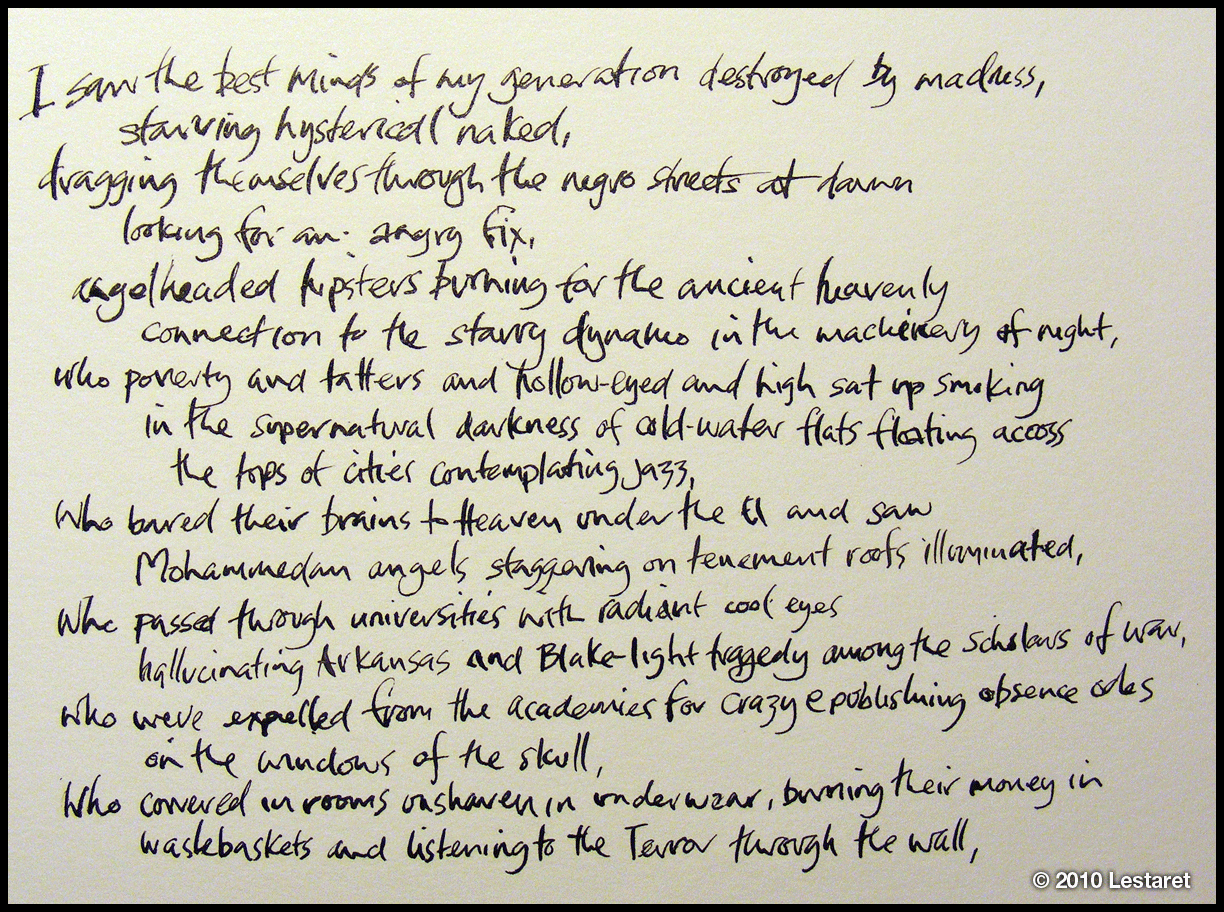 I saw the best minds of my generation destroyed by madness,
starving hysterical naked,
dragging themselves through the negro streets at dawn
looking for an angry fix,
angelheaded hipsters burning for the ancient heavenly
connection to the starry dynamo in the machinery of night,
who poverty and tatters and hollow-eyed and high sat up smoking
in the supernatural darkness of cold-water flats floating across
the tops of cities contemplating jazz,
who bared their brains to Heaven under the El and saw
Mohammedan angels staggering on tenement roofs illuminated,
who passed through universities with radiant cool eyes
hallucinating Arkansas and Blake-light tragedy among the scholars of war,
who were expelled from the academies for crazy & publishing obscene odes
on the windows of the skull,
who cowered in rooms unshaven in underwear, burning their money in
wastebaskets and listening to the Terror through the wall,
© 2010 Lestaret